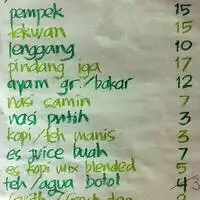 pempek 15
tekwan 15
lenggang 10
pindang iga 17
ayam gr./bakar 12
nasi samin 7
nasi putih 3
kopi/teh manis 3
es juice buah 7
es kopi mix blended 5
teh/aqua botol 4